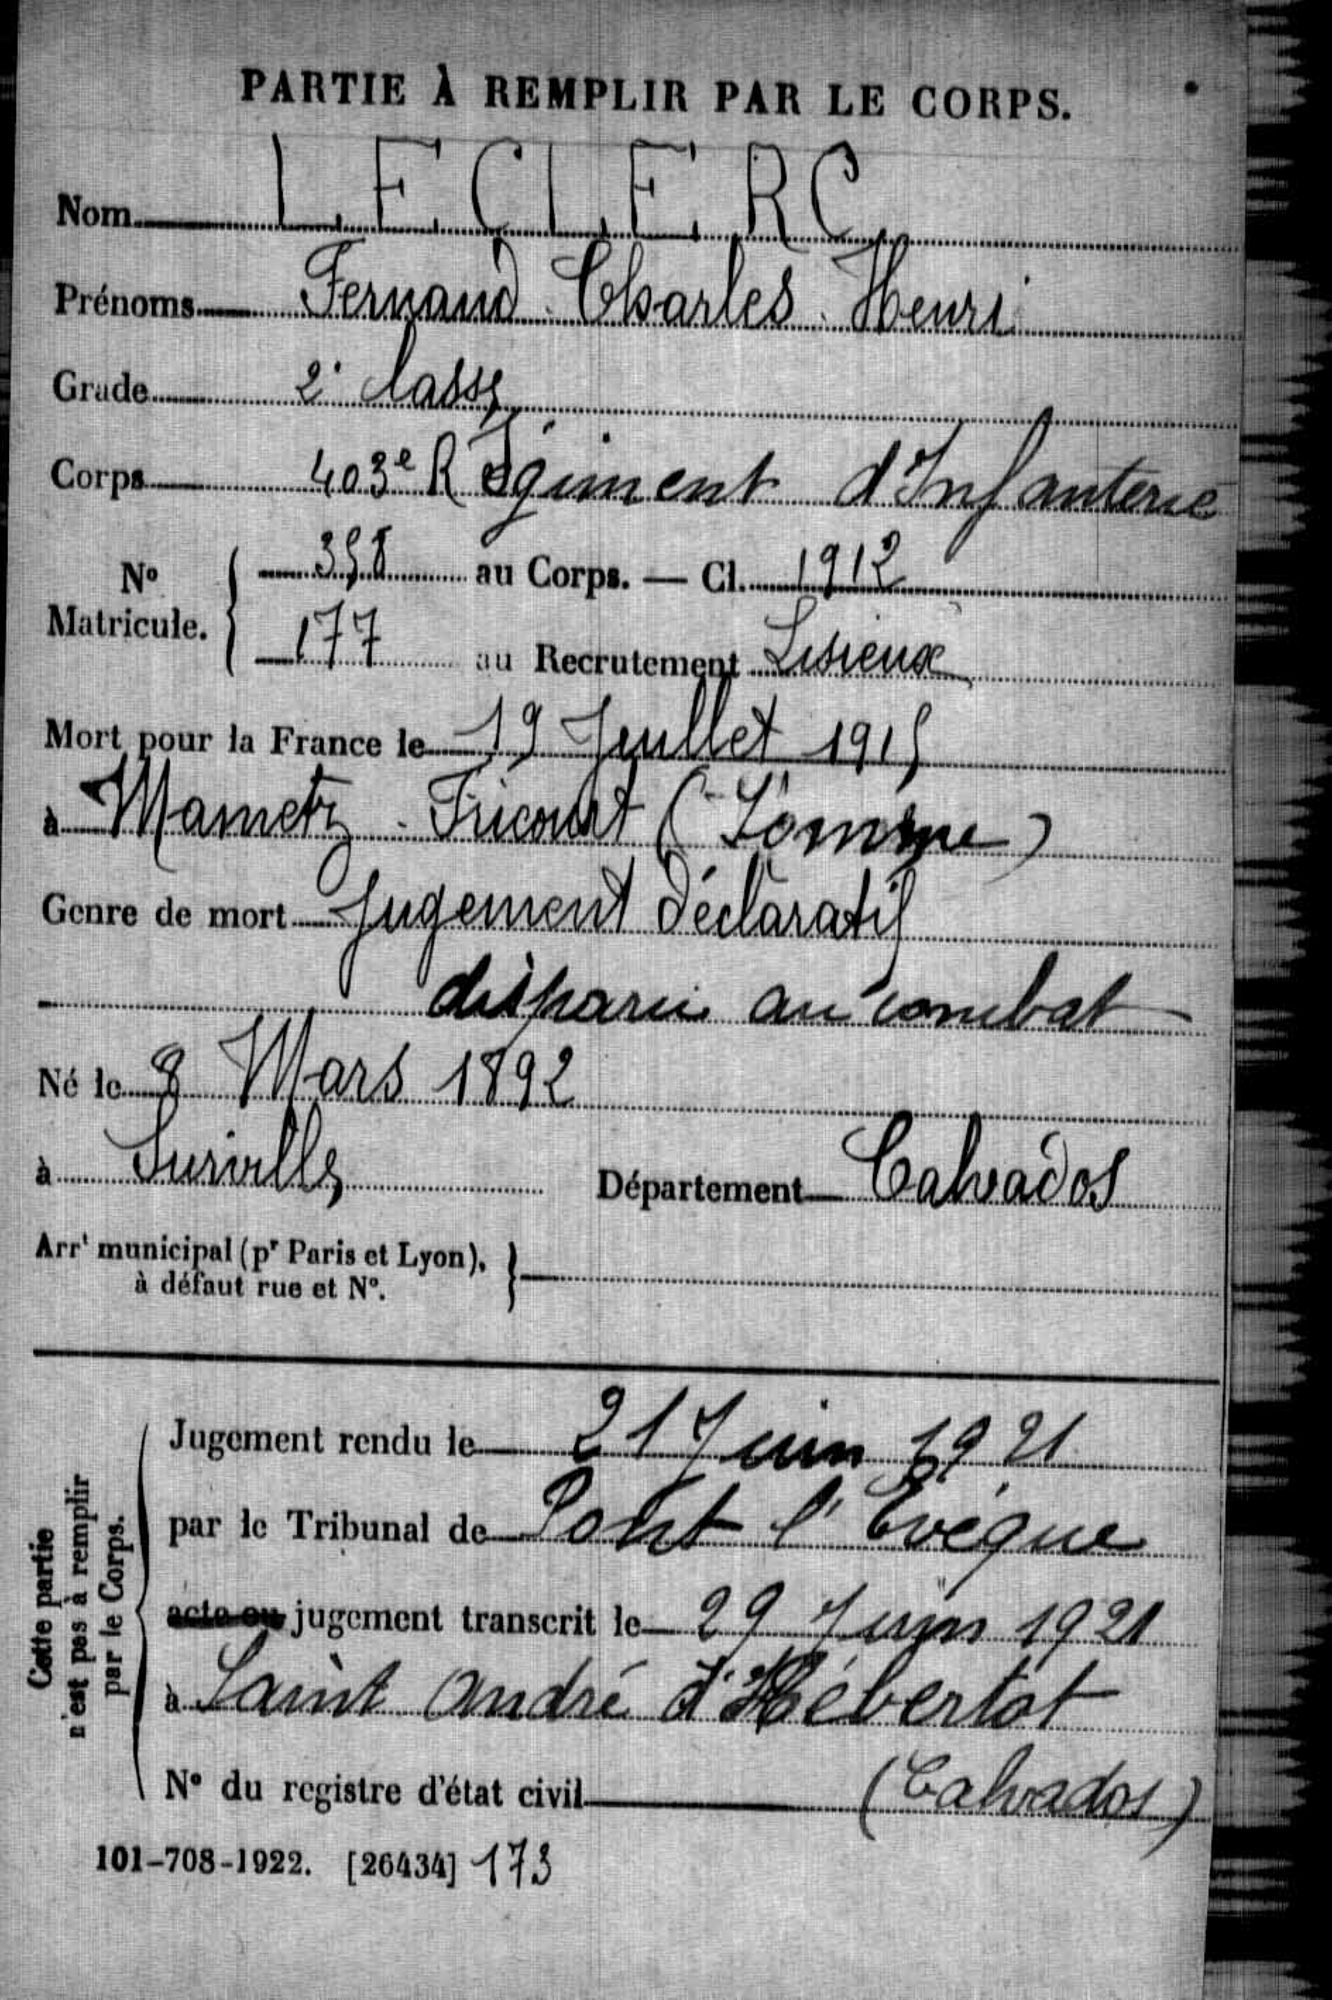 PARTIE À REMPLIR PAR LE CORPS.
Nom LECLERC
Prénoms Fernand Charles Henri
Grade 2e classe
Corps 403e Régiment d'Infanterie
No Matricule. 358 au Corps. — Cl. 1912
177 au Recrutement Lisieux
Mort pour la France le 19 Juillet 1915
à Mametz - Fricourt (Somme)
Genre de mort Jugement déclaratif
disparu au combat
Né le 8 Mars 1892
à Surville Département Calvados
Arrt municipal (pr Paris et Lyon), à défaut rue et No.
Cette partie n'est pas à remplir par le Corps.
Jugement rendu le 21 Juin 1921
par le Tribunal de Pont l'Évêque
acte ou jugement transcrit le 29 Juin 1921
à Saint André d'Hébertot
No du registre d'état civil (Calvados)
101-708-1922. [26434] 173